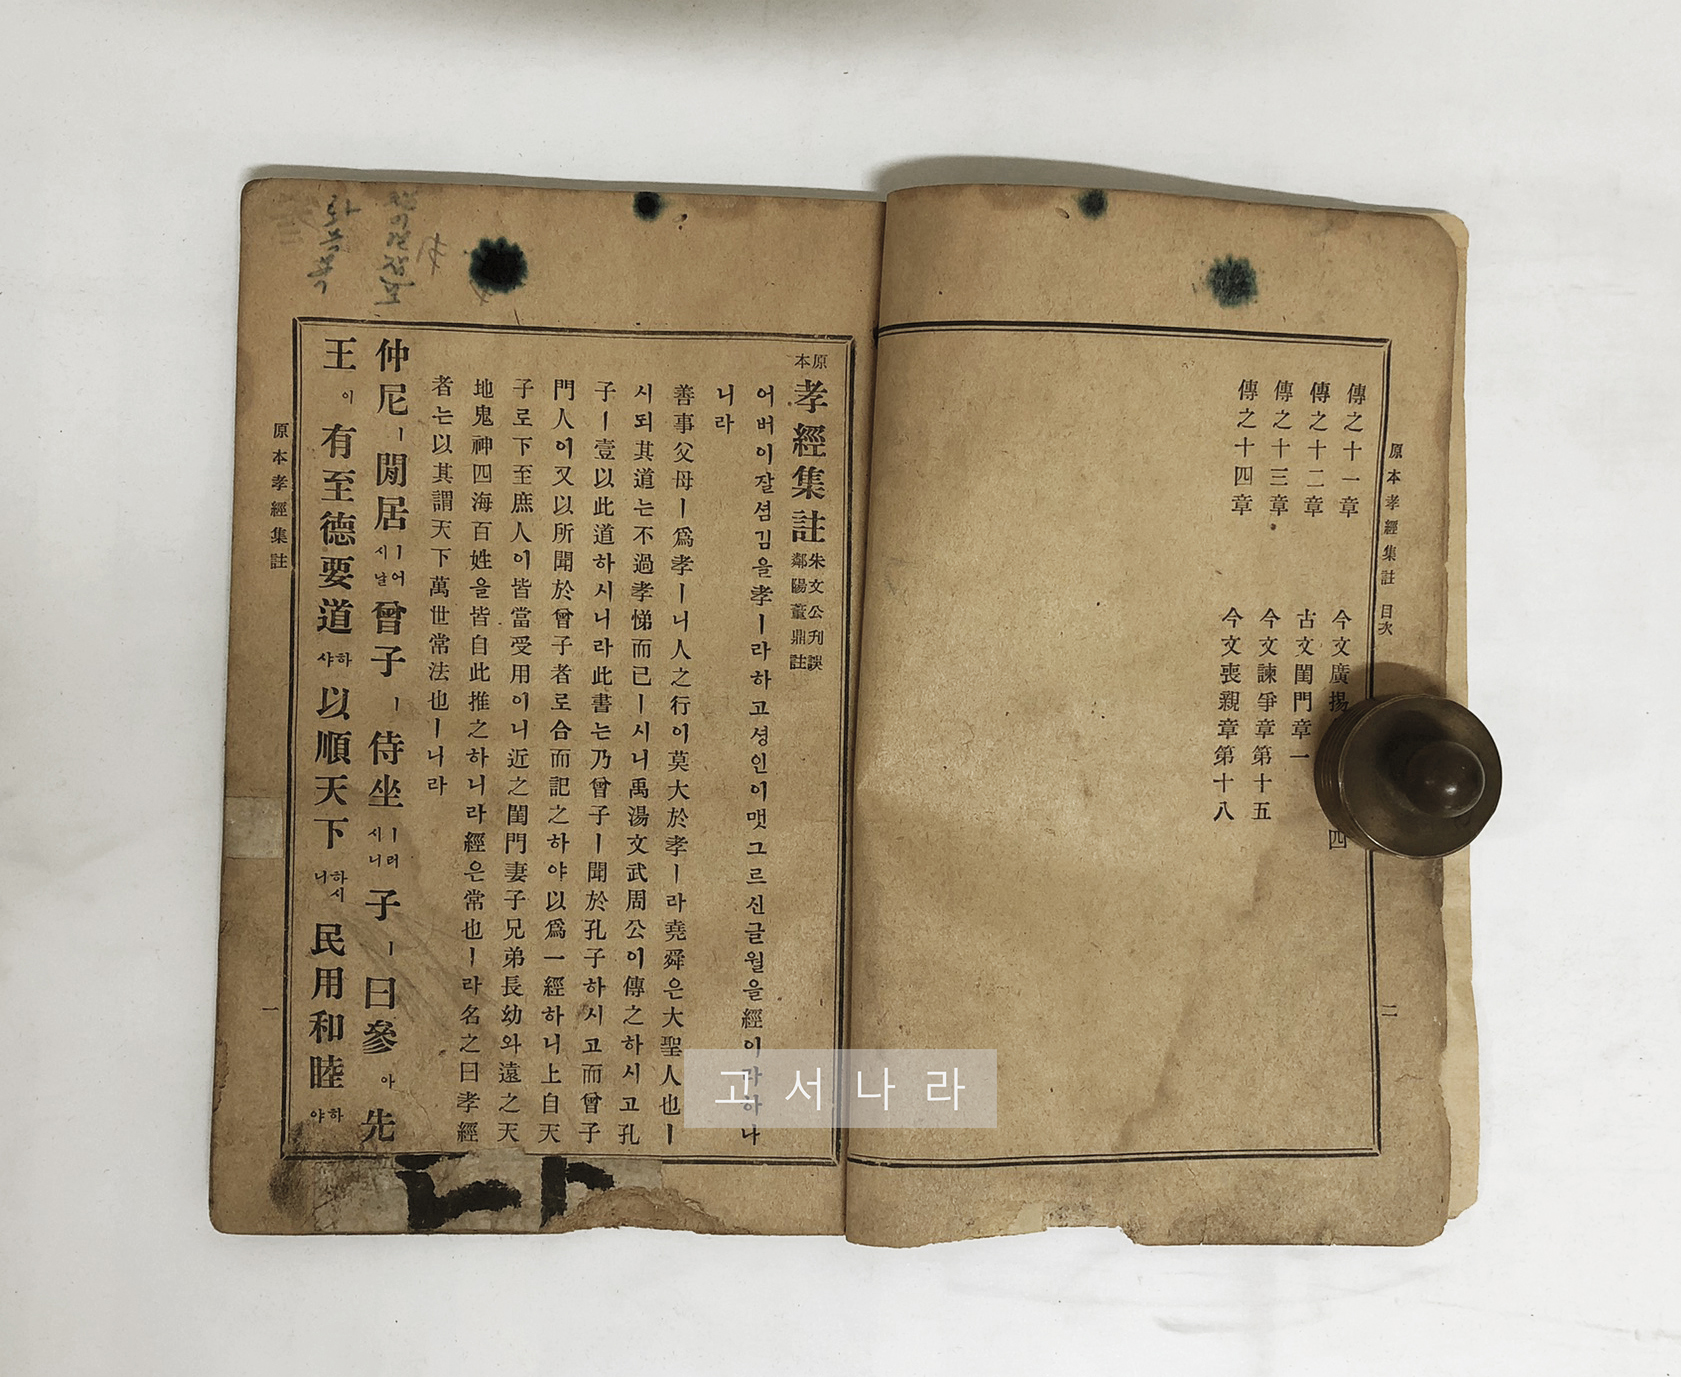 原本孝經集註 目次
二
傳之十一章
今文廣揚
四
傳之十二章
古文閨門章一
傳之十三章
今文諫爭章第十五
傳之十四章
今文喪親章第十八
原本孝經集註 朱文公刋誤 鄱陽董鼎註
어버이잘셤김을孝ㅣ라하고셩인이맷그르신글월을經이라하나
니라
善事父母ㅣ爲孝ㅣ니人之行이莫大於孝ㅣ라堯舜은大聖人也ㅣ
시되其道는不過孝悌而已ㅣ시니禹湯文武周公이傳之하시고孔
子ㅣ壹以此道하시니라此書는乃曾子ㅣ聞於孔子하시고而曾子
門人이又以所聞於曾子者로合而記之하야以爲一經하니上自天
子로下至庶人이皆當受用이니近之閨門妻子兄弟長幼와遠之天
地鬼神四海百姓을皆自此推之하니라經은常也ㅣ라名之曰孝經
者는以其謂天下萬世常法也ㅣ니라
仲尼ㅣ閒居ㅣ어시날曾子ㅣ侍坐ㅣ러시니子ㅣ曰參아先
王이有至德要道하샤以順天下하시니民用和睦하야
原本孝經集註
一
고서나라